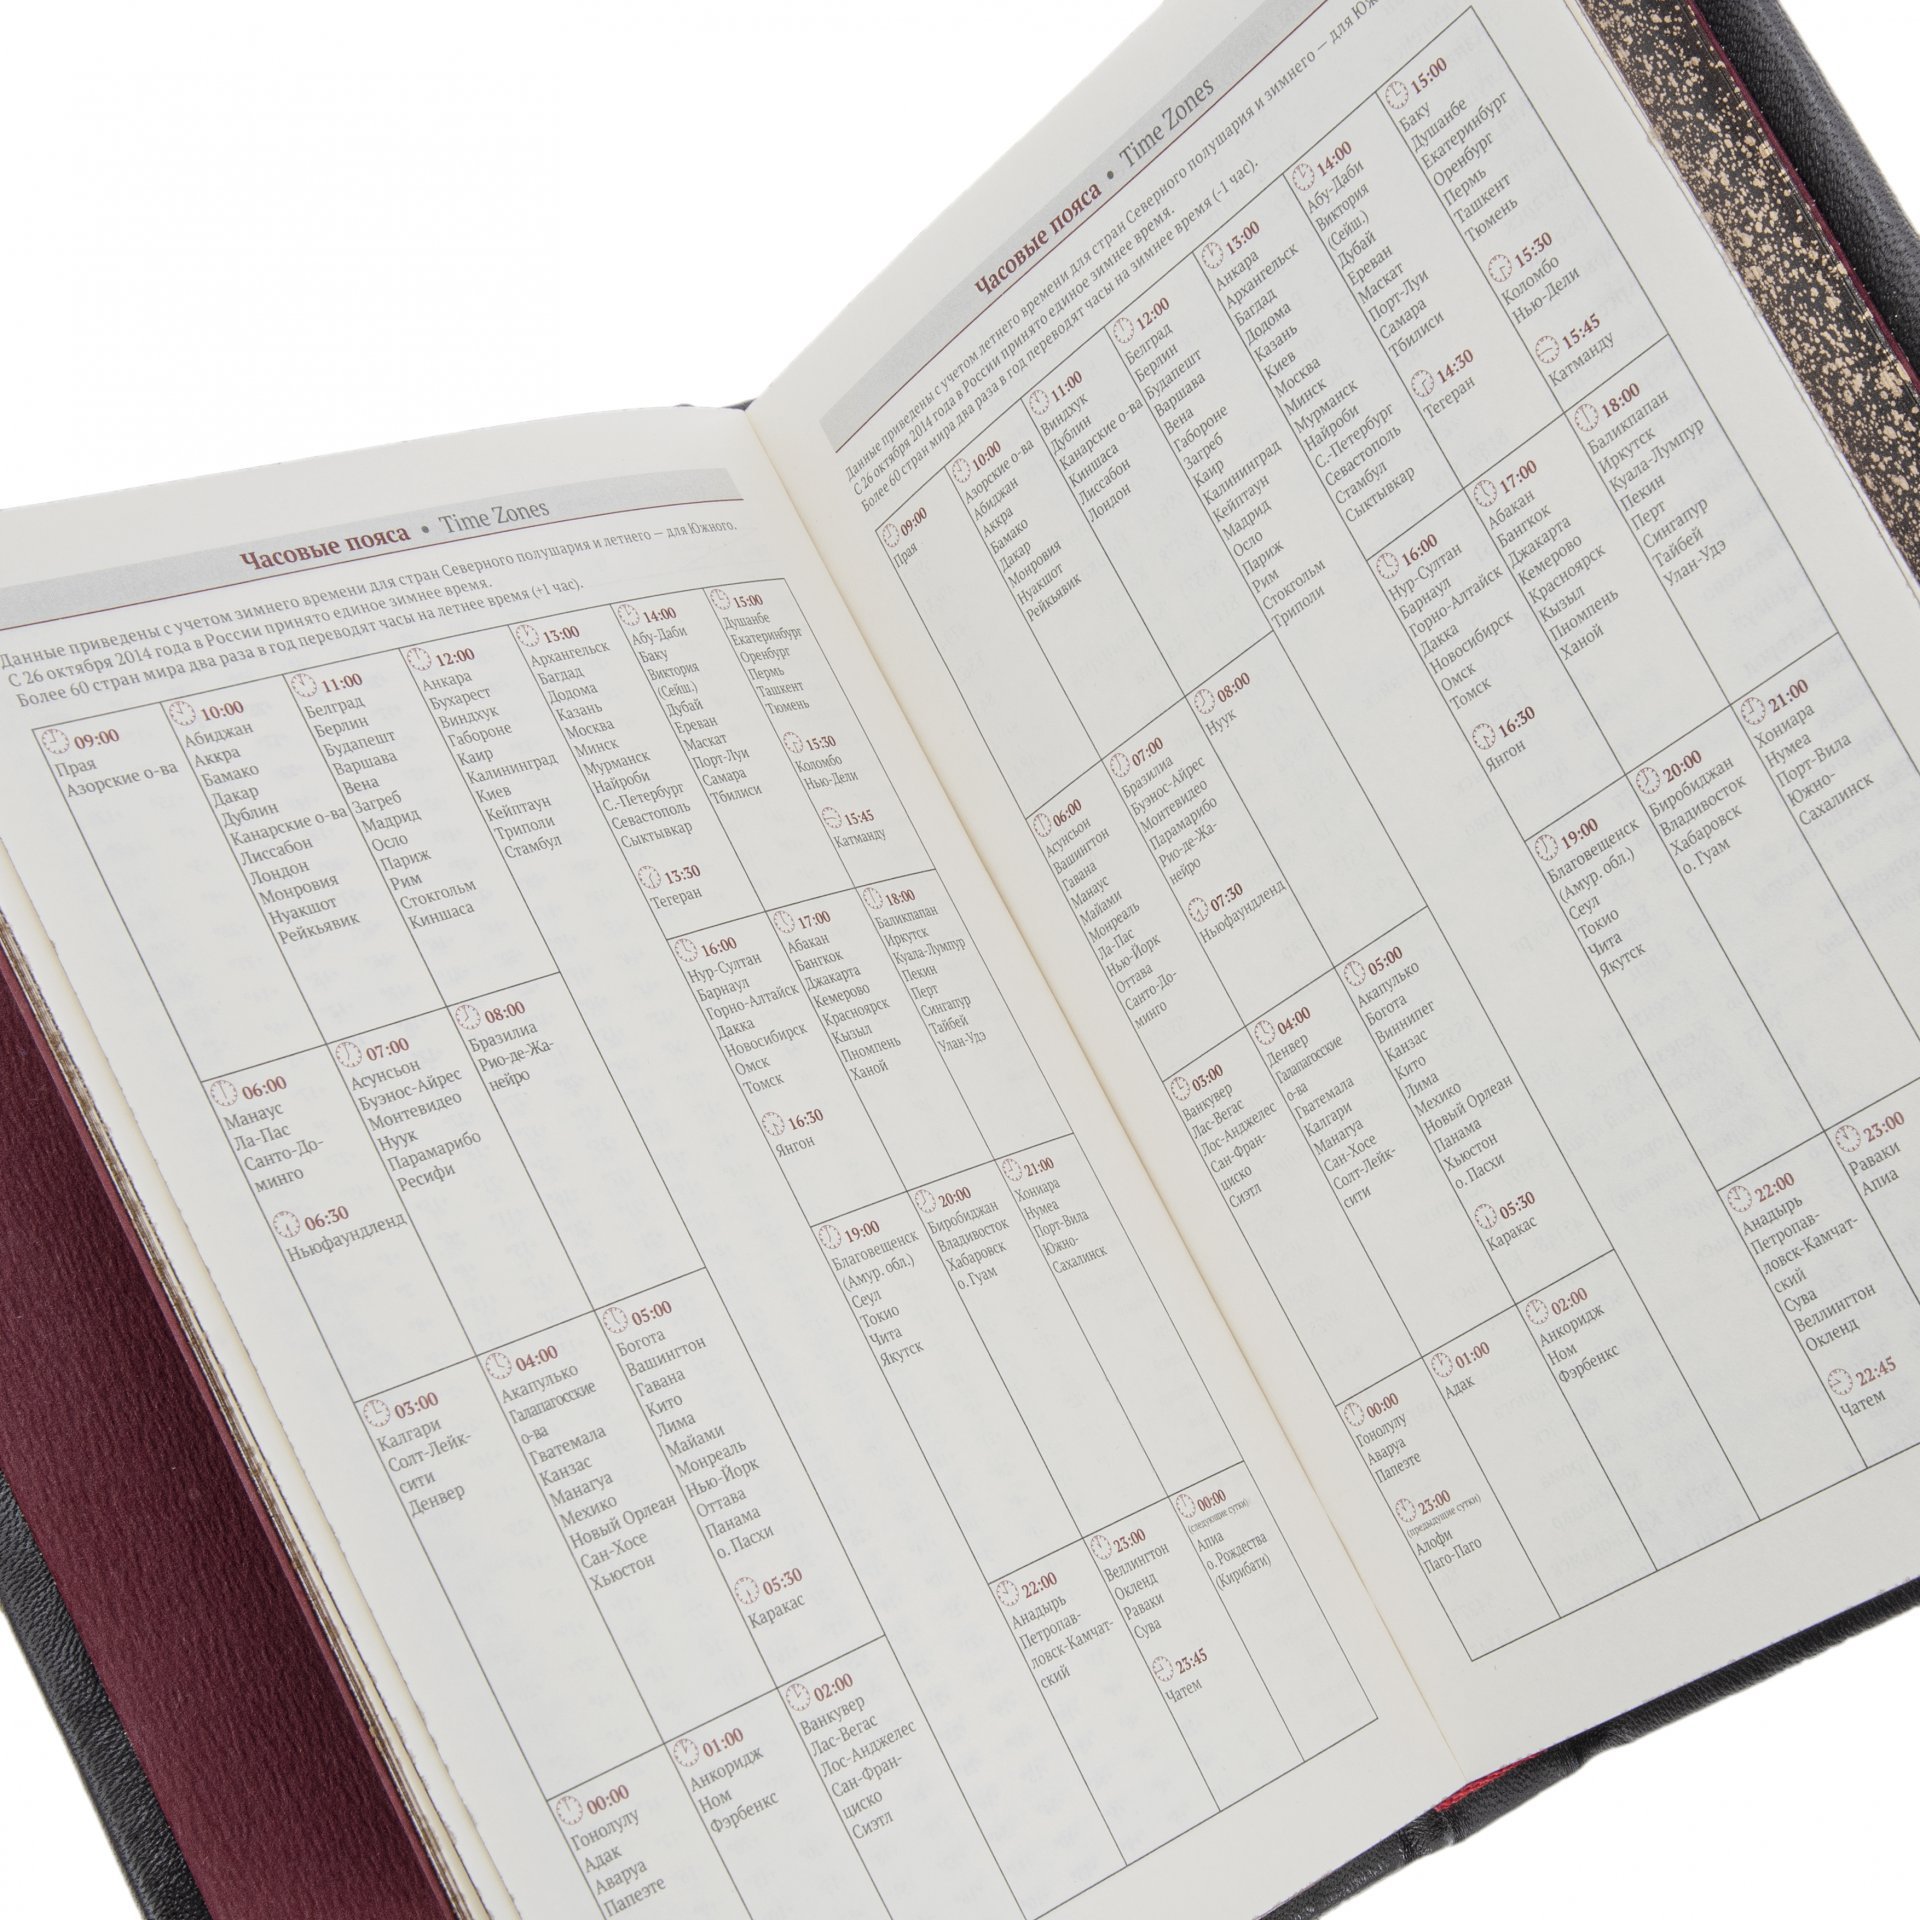 Часовые пояса • Time Zones
Данные приведены с учетом зимнего времени для стран Северного полушария и летнего — для Южного.
С 26 октября 2014 года в России принято единое зимнее время.
Более 60 стран мира два раза в год переводят часы на летнее время (+1 час).
09:00
Прая
Азорские о-ва
10:00
Абиджан
Аккра
Бамако
Дакар
Дублин
Канарские о-ва
Лиссабон
Лондон
Монровия
Нуакшот
Рейкьявик
11:00
Белград
Берлин
Будапешт
Варшава
Вена
Загреб
Мадрид
Осло
Париж
Рим
Стокгольм
Киншаса
12:00
Анкара
Бухарест
Виндхук
Габороне
Каир
Калининград
Киев
Кейптаун
Триполи
Стамбул
13:00
Архангельск
Багдад
Додома
Казань
Москва
Минск
Мурманск
Найроби
С.-Петербург
Севастополь
Сыктывкар
13:30
Тегеран
14:00
Абу-Даби
Баку
Виктория
(Сейш.)
Дубай
Ереван
Маскат
Порт-Луи
Самара
Тбилиси
15:00
Душанбе
Екатеринбург
Оренбург
Пермь
Ташкент
Тюмень
15:30
Коломбо
Нью-Дели
15:45
Катманду
06:00
Манаус
Ла-Пас
Санто-До-
минго
06:30
Ньюфаундленд
07:00
Асунсьон
Буэнос-Айрес
Монтевидео
Нуук
Парамарибо
Ресифи
08:00
Бразилиа
Рио-де-Жа-
нейро
16:00
Нур-Султан
Барнаул
Горно-Алтайск
Дакка
Новосибирск
Омск
Томск
16:30
Янгон
17:00
Абакан
Бангкок
Джакарта
Кемерово
Красноярск
Кызыл
Пномпень
Ханой
18:00
Баликпапан
Иркутск
Куала-Лумпур
Пекин
Перт
Сингапур
Тайбей
Улан-Удэ
03:00
Калгари
Солт-Лейк-
сити
Денвер
04:00
Акапулько
Галапагосские
о-ва
Гватемала
Канзас
Манагуа
Мехико
Новый Орлеан
Сан-Хосе
Хьюстон
05:00
Богота
Вашингтон
Гавана
Кито
Лима
Майами
Монреаль
Нью-Йорк
Оттава
Панама
о. Пасхи
05:30
Каракас
19:00
Благовещенск
(Амур. обл.)
Сеул
Токио
Чита
Якутск
20:00
Биробиджан
Владивосток
Хабаровск
о. Гуам
21:00
Хониара
Нумеа
Порт-Вила
Южно-
Сахалинск
00:00
Гонолулу
Адак
Аваруа
Папеэте
01:00
Анкоридж
Ном
Фэрбенкс
02:00
Ванкувер
Лас-Вегас
Лос-Анджелес
Сан-Фран-
циско
Сиэтл
22:00
Анадырь
Петропав-
ловск-Камчат-
ский
23:00
Веллингтон
Окленд
Раваки
Сува
23:45
Чатем
00:00
(следующие сутки)
Апиа
о. Рождества
(Кирибати)
Часовые пояса • Time Zones
Данные приведены с учетом летнего времени для стран Северного полушария и зимнего — для Юж
С 26 октября 2014 года в России принято единое зимнее время.
Более 60 стран мира два раза в год переводят часы на зимнее время (-1 час).
09:00
Прая
10:00
Азорские о-ва
Абиджан
Аккра
Бамако
Дакар
Монровия
Нуакшот
Рейкьявик
11:00
Виндхук
Дублин
Канарские о-ва
Киншаса
Лиссабон
Лондон
12:00
Белград
Берлин
Будапешт
Варшава
Вена
Габороне
Загреб
Каир
Калининград
Кейптаун
Мадрид
Осло
Париж
Рим
Стокгольм
Триполи
13:00
Анкара
Архангельск
Багдад
Додома
Казань
Киев
Москва
Минск
Мурманск
Найроби
С.-Петербург
Севастополь
Стамбул
Сыктывкар
14:00
Абу-Даби
Виктория
(Сейш.)
Дубай
Ереван
Маскат
Порт-Луи
Самара
Тбилиси
14:30
Тегеран
15:00
Баку
Душанбе
Екатеринбург
Оренбург
Пермь
Ташкент
Тюмень
15:30
Коломбо
Нью-Дели
15:45
Катманду
06:00
Асунсьон
Вашингтон
Гавана
Манаус
Майами
Монреаль
Ла-Пас
Нью-Йорк
Оттава
Санто-До-
минго
07:00
Бразилиа
Буэнос-Айрес
Монтевидео
Парамарибо
Рио-де-Жа-
нейро
07:30
Ньюфаундленд
08:00
Нуук
16:00
Нур-Султан
Барнаул
Горно-Алтайск
Дакка
Новосибирск
Омск
Томск
16:30
Янгон
17:00
Абакан
Бангкок
Джакарта
Кемерово
Красноярск
Кызыл
Пномпень
Ханой
18:00
Баликпапан
Иркутск
Куала-Лумпур
Пекин
Перт
Сингапур
Тайбей
Улан-Удэ
03:00
Ванкувер
Лас-Вегас
Лос-Анджелес
Сан-Фран-
циско
Сиэтл
04:00
Денвер
Галапагосские
о-ва
Гватемала
Калгари
Манагуа
Сан-Хосе
Солт-Лейк-
сити
05:00
Акапулько
Богота
Виннипег
Канзас
Кито
Лима
Мехико
Новый Орлеан
Панама
Хьюстон
о. Пасхи
05:30
Каракас
19:00
Благовещенск
(Амур. обл.)
Сеул
Токио
Чита
Якутск
20:00
Биробиджан
Владивосток
Хабаровск
о. Гуам
21:00
Хониара
Нумеа
Порт-Вила
Южно-
Сахалинск
00:00
Гонолулу
Аваруа
Папеэте
23:00
(предыдущие сутки)
Алофи
Паго-Паго
01:00
Адак
02:00
Анкоридж
Ном
Фэрбенкс
22:00
Анадырь
Петропав-
ловск-Камчат-
ский
Сува
Веллингтон
Окленд
22:45
Чатем
23:00
Раваки
Апиа